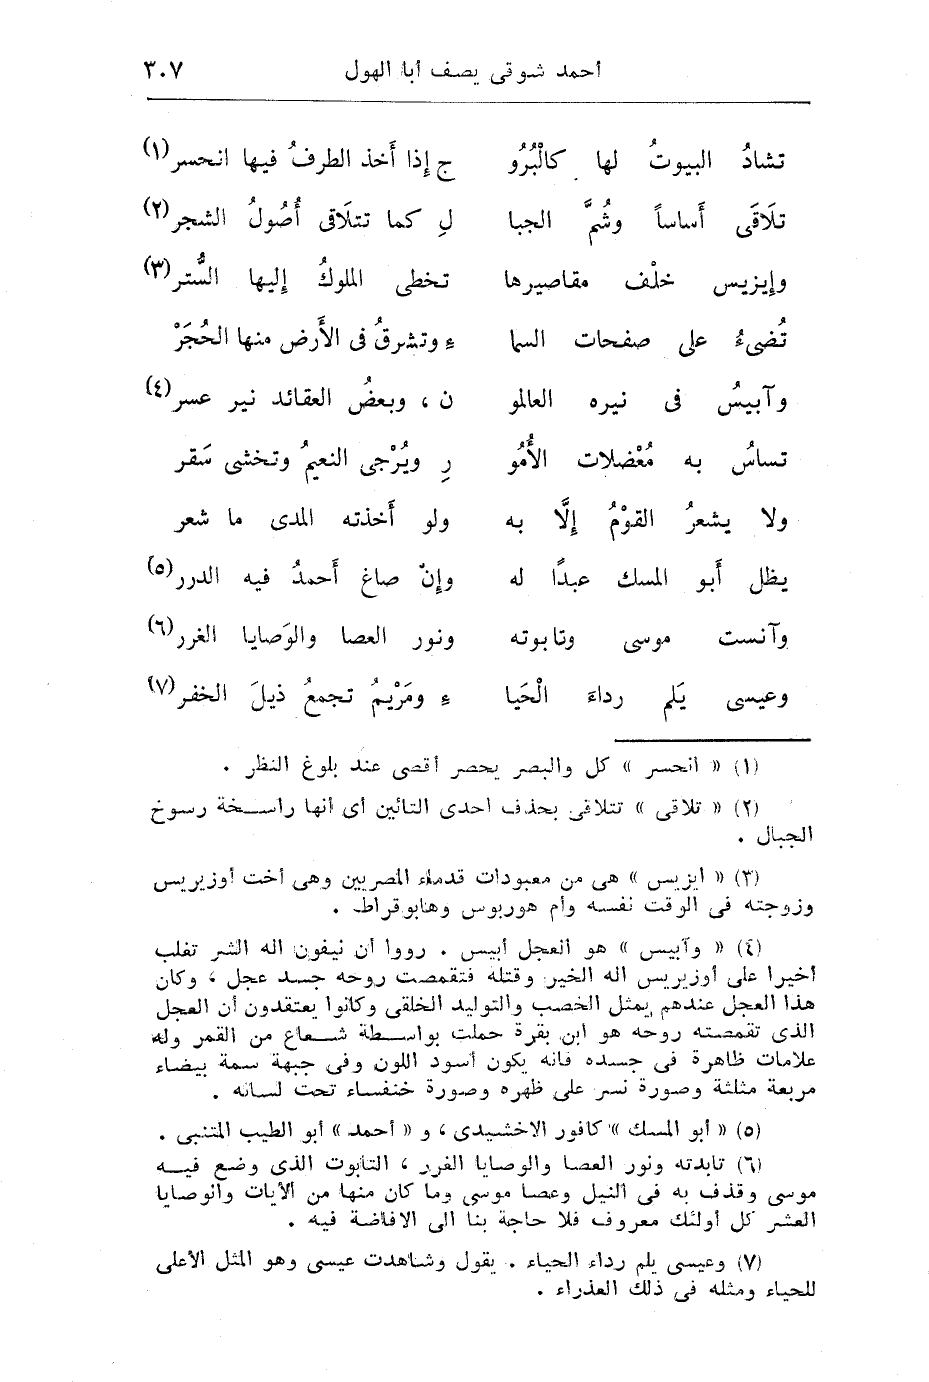 أحمد شوقى يصف أبا الهول ٣٠٧
تشادُ البيوتُ لها كالْبُرُو ج إذا أَخذ الطرفُ فيها انحسر(١)
تلَاقَى أساساً وشُمَّ الجبا لِ كما تتلَاقى أُصُولُ الشجر(٢)
وإيزيس خلْف مقاصيرها تخطى الملوكُ إليها السُّتر(٣)
تُضىءُ على صفحات السما ء وتشرقُ فى الأَرض منها الحُجَرْ
وآبيسُ فى نيره العالمو ن ، وبعضُ العقائد نير عسر(٤)
تساسُ به مُعْضلات الأُمُو رِ ويُرْجى النعيمُ وتخشى سَقر
ولا يشعرُ القوْمُ إلَّا به ولو أَخذته المدى ما شعر
يظل أَبو المسك عبدًا له وإنْ صاغ أَحمدُ فيه الدرر(٥)
وآنست موسى وتابوته ونور العصا والوَصايا الغرر(٦)
وعيسى يَلم رداءَ الْحَيا ء ومَرْيمُ تجمعُ ذيلَ الخفر(٧)
(١) « انحسر » كل والبصر يحصر أقصى عند بلوغ النظر .
(٢) « تلاقى » تتلاقى بحذف احدى التائين أى أنها راسخة رسوخ
الجبال .
(٣) « أيزيس » هى من معبودات قدماء المصريين وهى أخت أوزيريس
وزوجته فى الوقت نفسه وأم هوربوس وهابوقراط .
(٤) « وآبيس » هو العجل أبيس . رووا أن نيفون اله الشر تغلب
أخيرا على أوزيريس اله الخير وقتله فتقمصت روحه جسد عجل ، وكان
هذا العجل عندهم يمثل الخصب والتوليد الخلقى وكانوا يعتقدون أن العجل
الذى تقمصته روحه هو ابن بقرة حملت بواسطة شعاع من القمر وله
علامات ظاهرة فى جسده فانه يكون أسود اللون وفى جبهة سمة بيضاء
مربعة مثلثة وصورة نسر على ظهره وصورة خنفساء تحت لسانه .
(٥) « أبو المسك » كافور الاخشيدى ، و « أحمد » أبو الطيب المتنبى .
(٦) تابدته ونور العصا والوصايا الغرر ، التابوت الذى وضع فيه
موسى وقذف به فى النيل وعصا موسى وما كان منها من الآيات والوصايا
العشر كل أولئك معروف فلا حاجة بنا الى الافاضة فيه .
(٧) وعيسى يلم رداء الحياء . يقول وشاهدت عيسى وهو المثل الأعلى
للحياء ومثله فى ذلك العذراء .